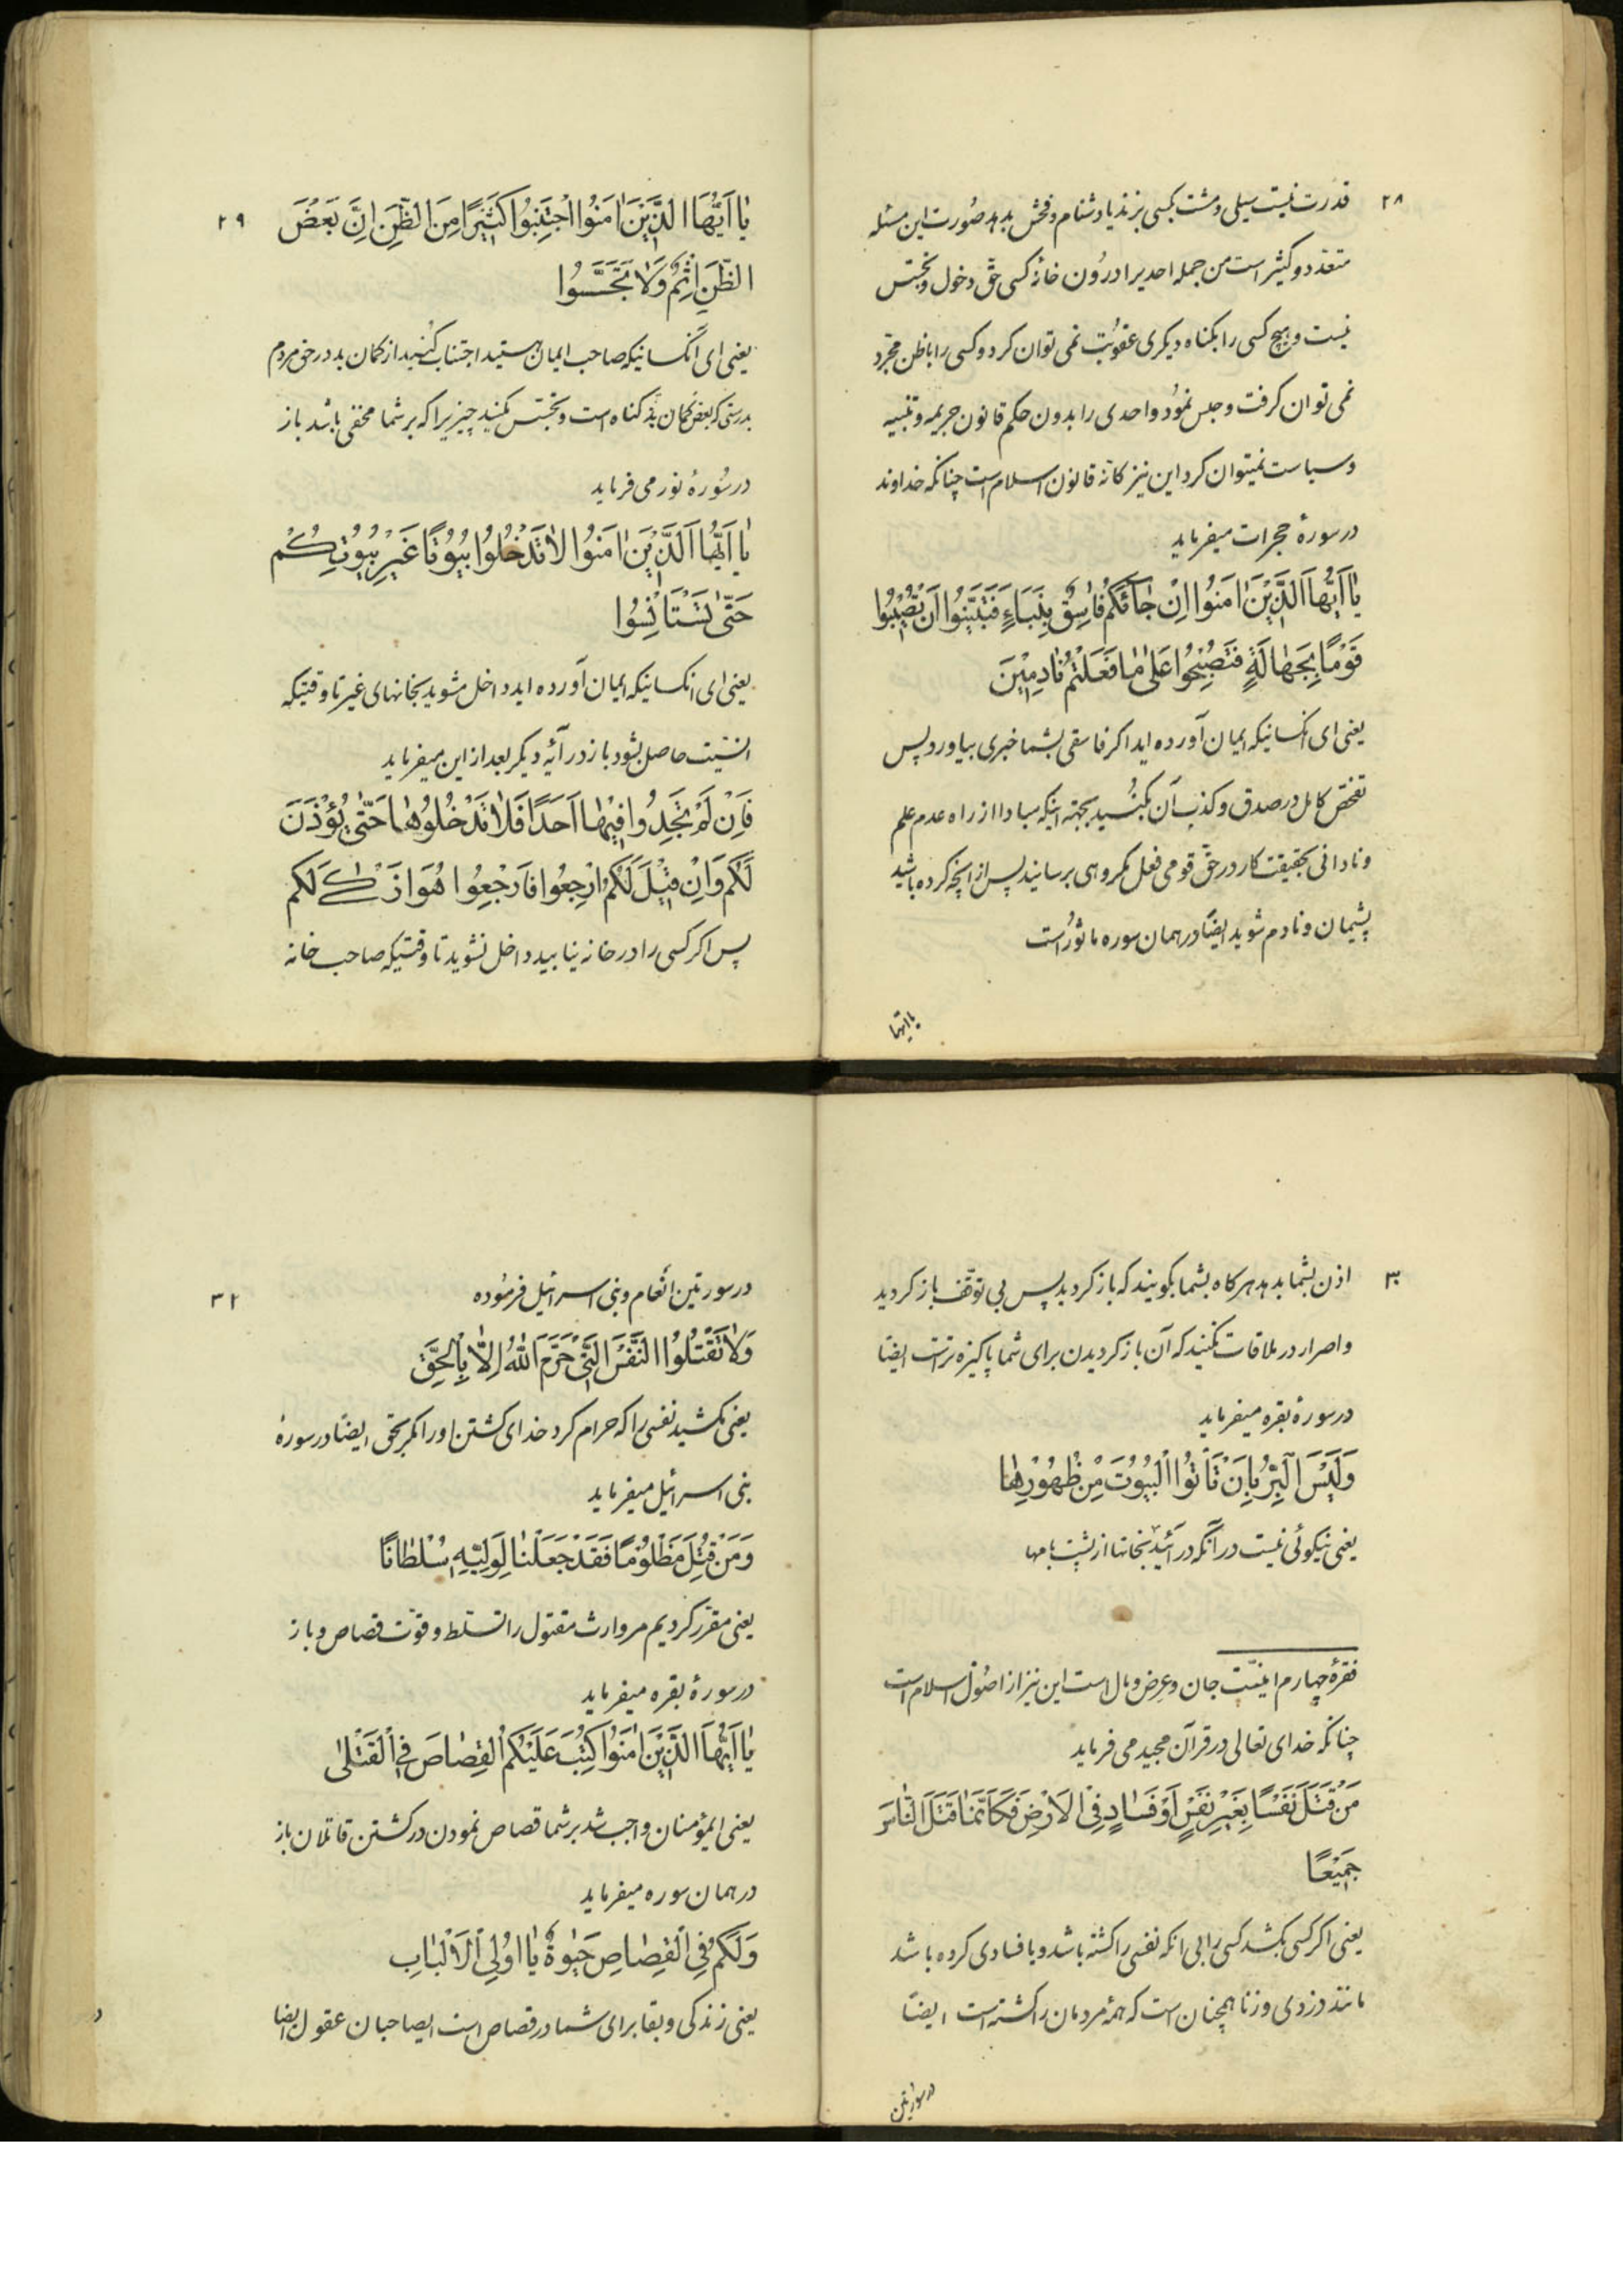 ۲۸
قدرت نیست سیلی و مشت بکسی بزند یا دشنام و فحش بدهد صُورت این مسئله
متعدد و کثیر است من جمله احدیرا درُون خانهٔ کسی حقّ دخول و تجسّس
نیست و هیچ کسی را بکناه دیکری عقوُبت نمی توان کرد و کسی را با ظن مجرّد
نمی توان کرفت و حبس نموُد و احدی را بدون حکم قانون جریمه و تنبیه
و سیاست نمیتوان کرد این نیز کانّه قانون اسلام است چنانکه خداوند
در سورهٔ حجرات میفرماید
یٰا اَیُّهَا الَّذِیْنَ اٰمَنُوا اِنْ جٰائَکُمْ فٰاسِقٌ بِنَبَاءٍ فَتَبَیَّنُوا اَنْ تُصٖیْبُوا
قَوْمًا بِجَهٰالَةٍ فَتُصْبِحُوا عَلیٰ مٰا فَعَلْتُمْ نٰادِمٖیْنَ
یعنی ای انکسانیکه ایمان آورده اید اکر فاسقی بشما خبری بیاورد پس
تفحّص کامل در صدق و کذب آن بکنُید بجهته اینکه مبادا از راه عدم علم
و نادانی بحقیقت کار در حقّ قومی فعل مکروهی برسانید پس از انچه کرده باشید
پشیمان و نادم شوید ایضًا در همان سوره ماثوُر است
یا ایّها
۲۹
یٰا اَیُّهَا الَّذِیْنَ اٰمَنُوا اجْتَنِبُوا کَثٖیْرًا مِنَ الظَّنِ اِنَّ بَعْضَ
الظَّنِ اِثْمٌ وَلٰا تَجَسَّسُوا
یعنی ای انکسانیکه صاحب ایمان هستید اجتناب کنُید از کمان بد در حق مردم
بدرستی که بعض کمان بد کناه است و تجسّس مکنید چیزیرا که بر شما مخفی باشد باز
در سُورهٔ نور می فرماید
یٰا اَیُّهَا الَّذِیْنَ اٰمَنُوا لٰا تَدْخُلُوا بُیُوْتًا غَیْرَ بُیُوْتِکُمْ
حَتّیٰ تَسْتَاْنِسُوا
یعنی ای انکسانیکه ایمان آورده اید داخل مشوید بخانهای غیر تا وقتیکه
انسیّت حاصل بشود باز در آیهٔ دیکر بعد از این میفرماید
فَاِنْ لَمْ تَجِدُوا فٖیْهٰا اَحَدًا فَلٰا تَدْخُلُوْهٰا حَتّیٰ یُؤْذَنَ
لَکُمْ وَاِنْ قٖیْلَ لَکُمُ ارْجِعُوا فَارْجِعُوا هُوَ اَزْکیٰ لَکُم
پس اکر کسی را در خانه نیابید داخل نشوید تا وقتیکه صاحب خانه
۳۰
اذن بشما بدهد هر کاه بشما بکویند که باز کردید پس بی توقّف باز کردید
و اصرار در ملاقات مکنید که آن باز کردیدن برای شما پاکیزه تر است ایضًا
در سورهٔ بقره میفرماید
وَلَیْسَ الْبِرُّ بِاَنْ تَاْتُوا الْبُیُوْتَ مِنْ ظُهُوْرِهٰا
یعنی نیکوئی نیست در آنکه در آئید بخانها از پشت بامها
فقرهٔ چهارم امنیّت جان و عرض و مال است این نیز از اصُول اسلام است
چنانکه خدای تعالی در قرآن مجید می فرماید
مَنْ قَتَلَ نَفْسًا بِغَیْرِ نَفْسٍ اَوْ فَسٰادٍ فِی الْاَرْضِ فَکَاَنَّمٰا قَتَلَ النّٰاسَ
جَمٖیْعًا
یعنی اکر کسی بکشد کسی را بی انکه نفسی را کشته باشد و یا فسادی کرده باشد
مانند دزدی و زنا همچنان است که همهٔ مردمان را کشته است ایضًا
در سورتین
۳۱
در سورتین انعام و بنی اسرائیل فرموُده
وَلٰا تَقْتُلُوا النَّفْسَ الَّتیٖ حَرَّمَ اللّٰهُ اِلّٰا بِالْحَقِّ
یعنی مکشید نفسی را که حرام کرد خدای کشتن او را مکر بحق ایضًا در سورهٔ
بنی اسرائیل میفرماید
وَمَنْ قُتِلَ مَظْلُوْمًا فَقَدْ جَعَلْنٰا لِوَلِیِّهٖ سُلْطٰانًا
یعنی مقرّر کردیم مر وارث مقتول را تسلط و قوّت قصاص و باز
در سورهٔ بقره میفرماید
یٰا اَیُّهَا الَّذِیْنَ اٰمَنُوا کُتِبَ عَلَیْکُمُ الْقِصٰاصَ فِی الْقَتْلیٰ
یعنی ایمؤمنان واجب شد بر شما قصاص نمودن در کشتن قاتلان باز
در همان سوره میفرماید
وَلَکُمْ فِی الْقِصٰاصِ حَیٰوةٌ یٰا اوُلِی الْاَلْبٰابِ
یعنی زندکی و بقا برای شما در قصاص است ایصاحبان عقول ایضا